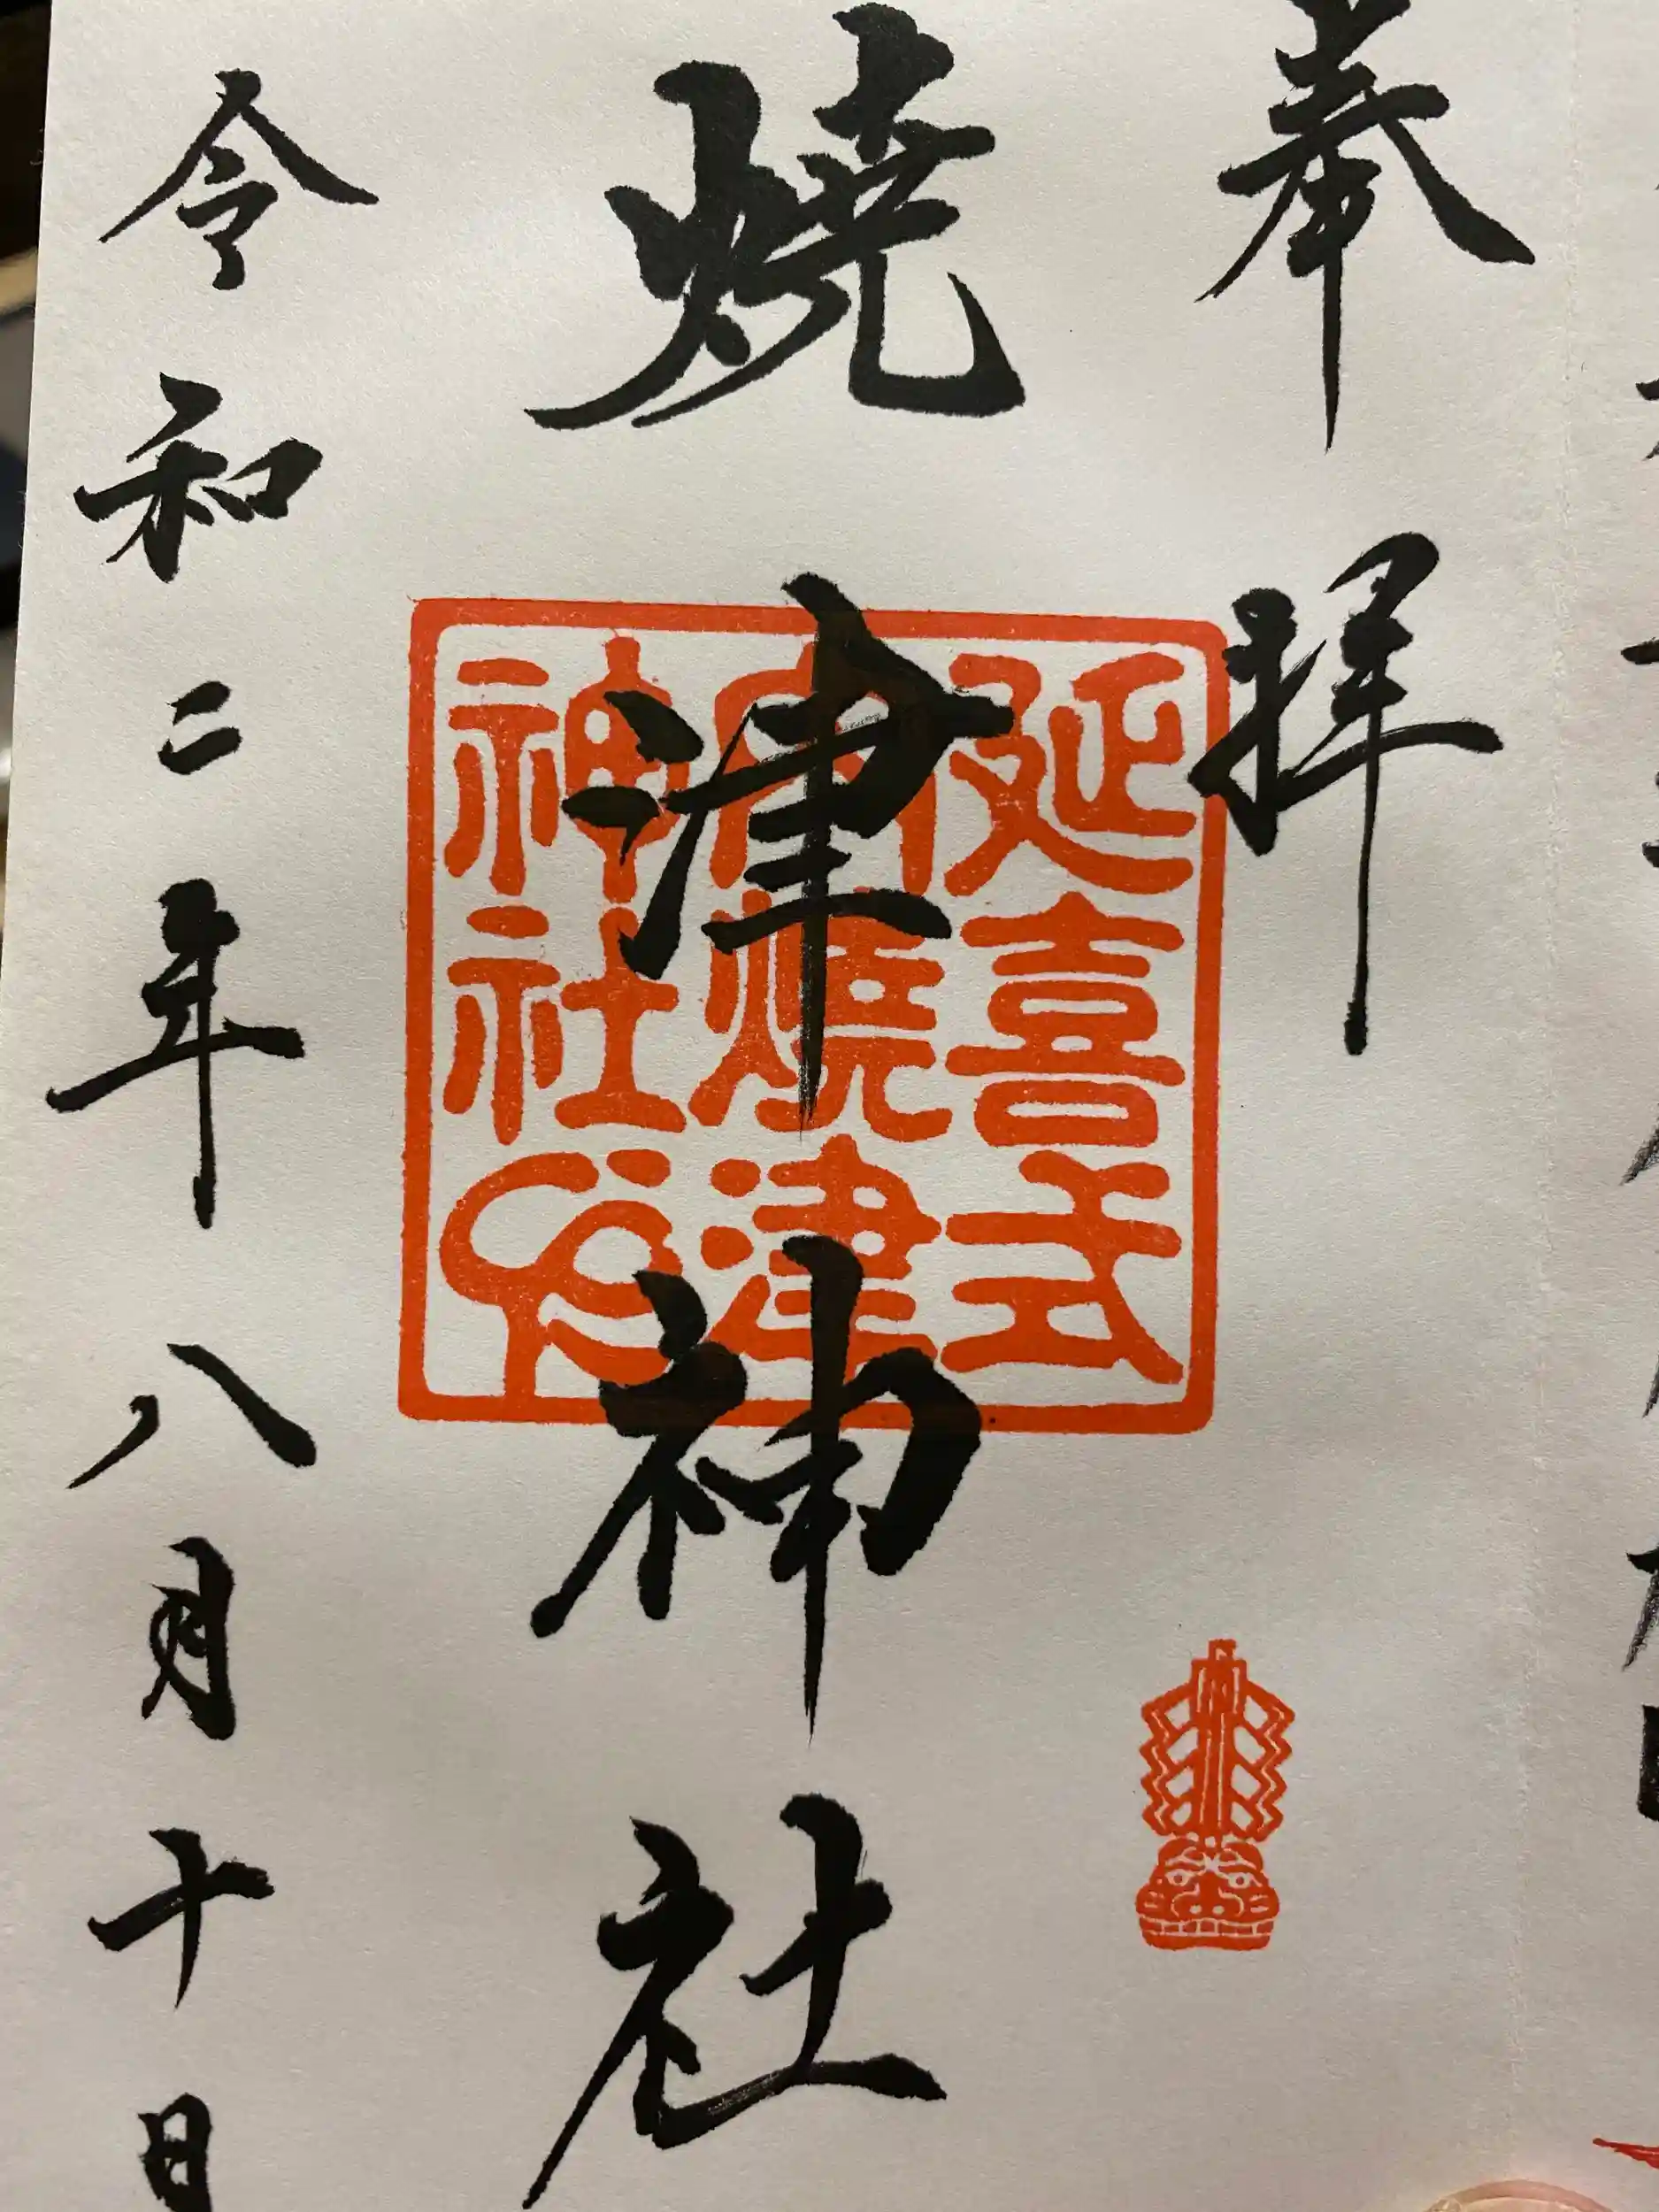 奉拝
焼津神社
延喜式
内焼津
神社
令和二年八月十日